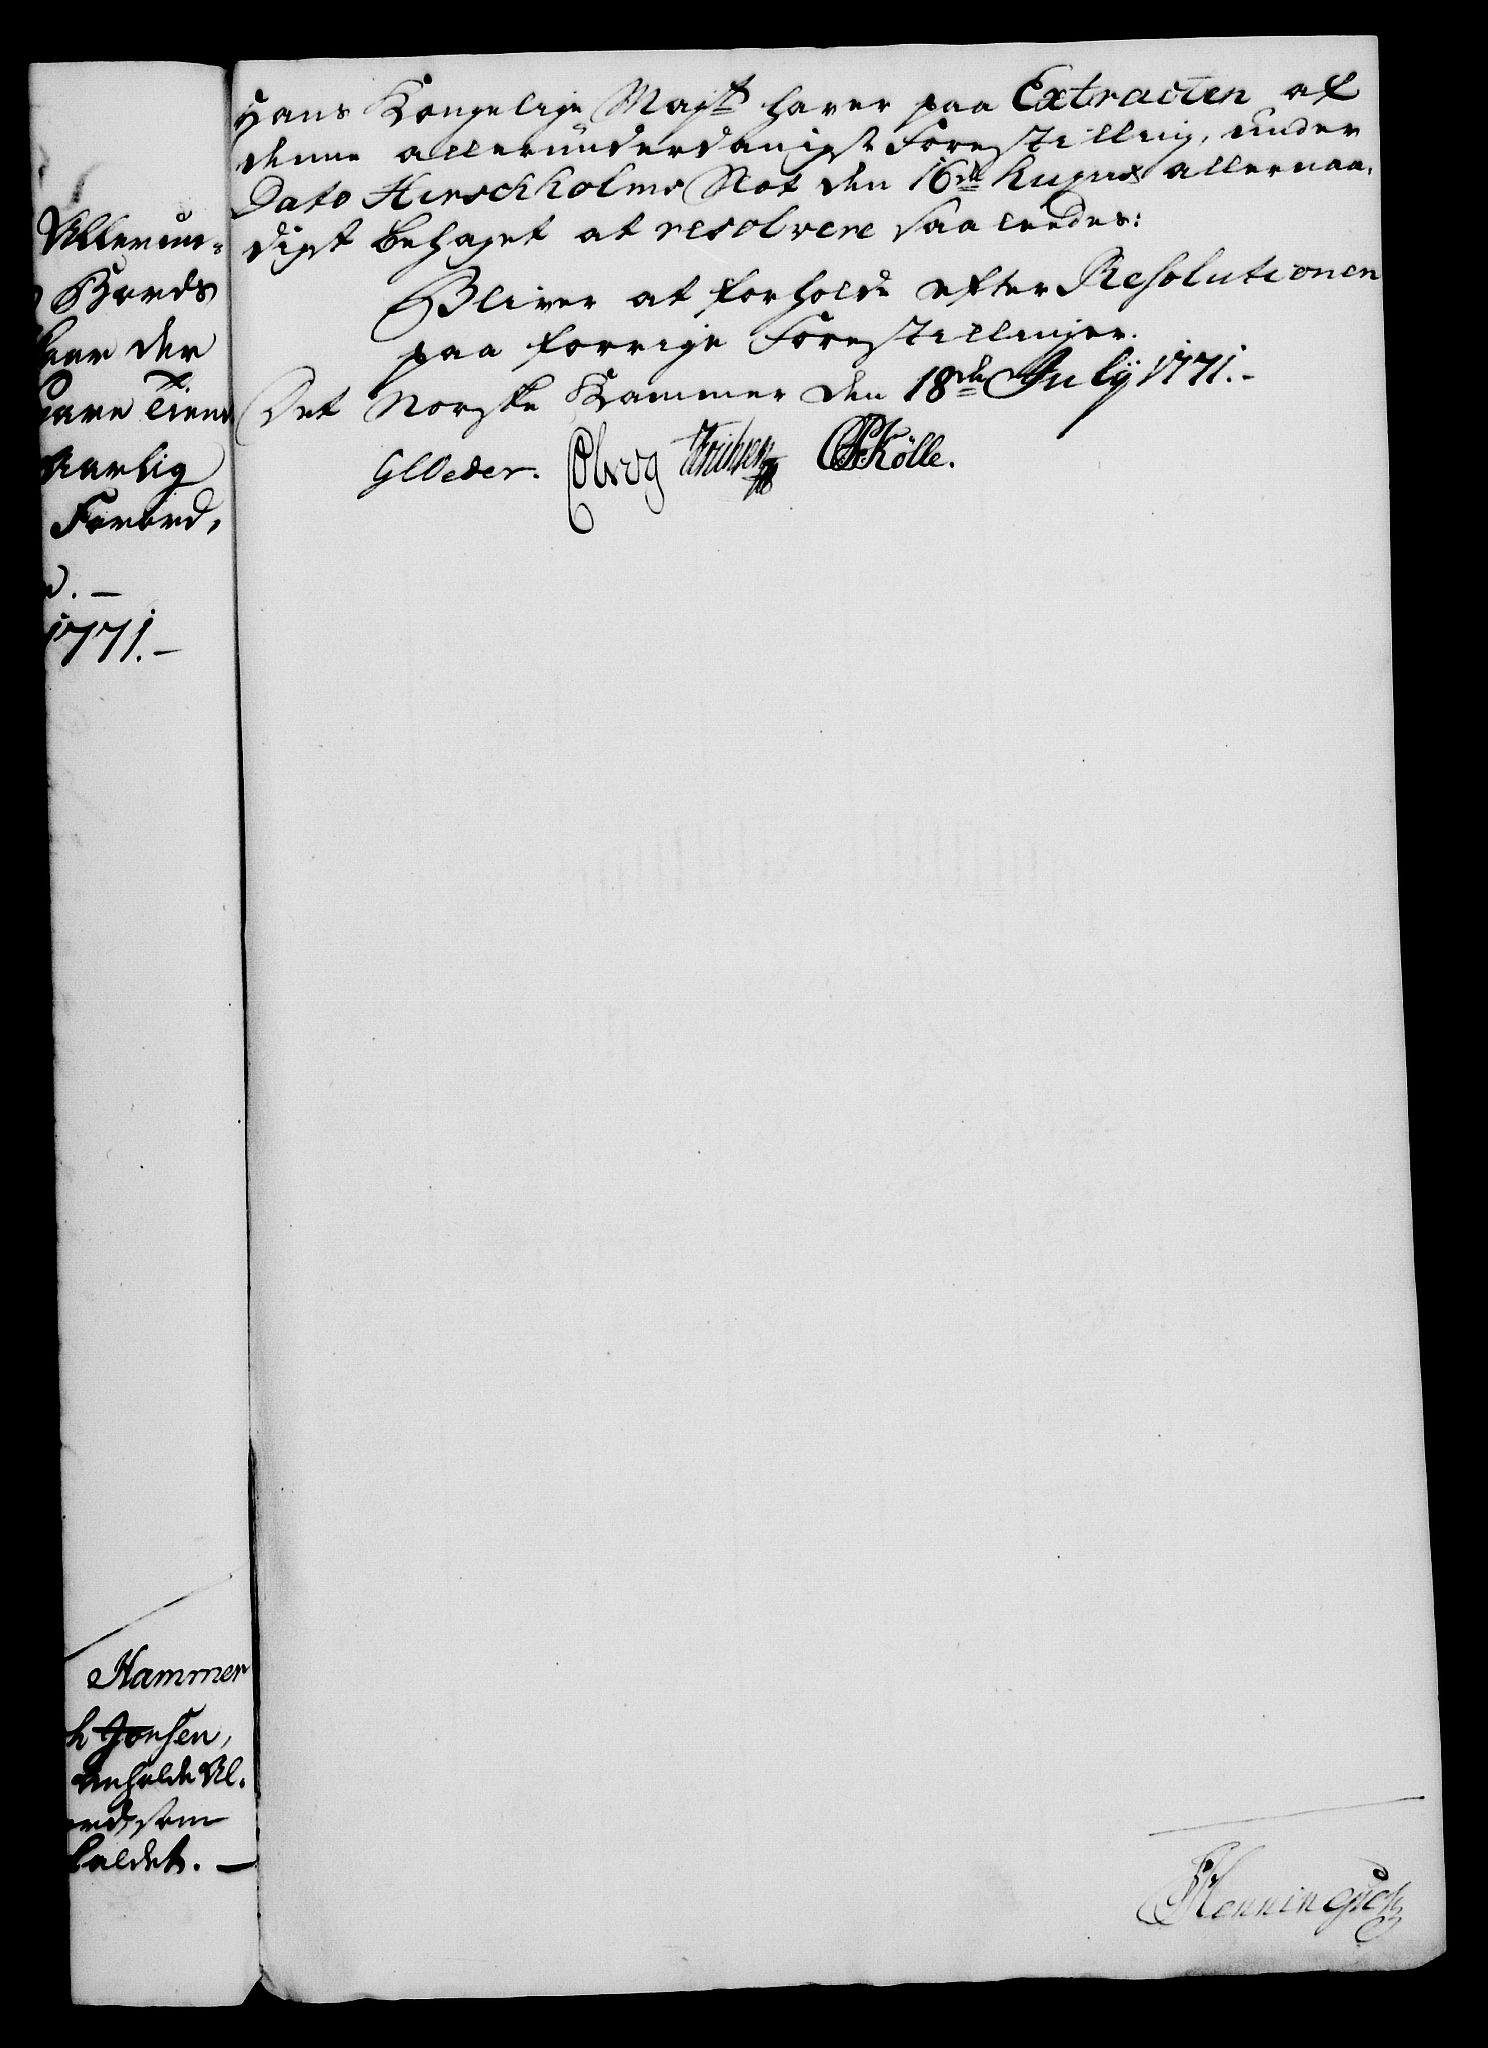 Hans Kongelige Majt haver paa Extracten af
denne allerunderdanigste Forestilling, under
Dato Hirschholms Slot den 16de hujus allernaa-
digst behaget at resolvere saaledes:
Bliver at forholde efter Resolutionen
paa forrige Forestillinger.
Det Norske Kammer den 18de July 1771.-
GCOeder. Thrihsen CPSkölle.
Allerun-
Bords
der
Tiend
aarlig
Forord,
1771.-
Hammer
h Jonsen,
anholdt Al-
som
holdet. -
Henningsen